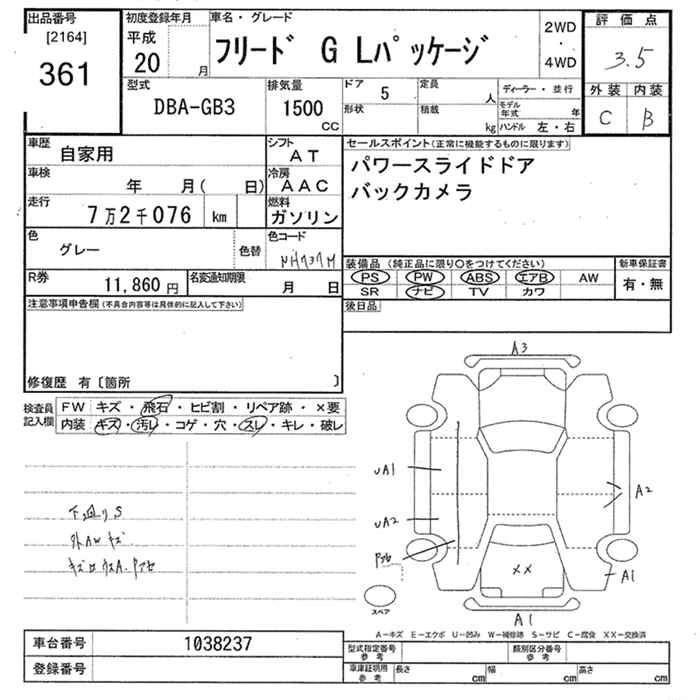 出品番号
[2164]
361
初度登録年月
平成
20 月
車名・グレード
フリード G Lパッケージ
2WD
・
4WD
評価点
3.5
外装 内装
C B
型式
DBA-GB3
排気量
1500
cc
ドア
5
形状
定員
人
積載
kg
ディーラー・並行
モデル年式 年
ハンドル 左・右
車歴
自家用
シフト
AT
車検
年 月( 日)
冷房
AAC
走行
7万2千076 km
燃料
ガソリン
色
グレー
色替
色コード
NH737M
R券
11,860 円
名変通知期限
月 日
セールスポイント(正常に機能するものに限ります)
パワースライドドア
バックカメラ
装備品 (純正品に限り○をつけてください)
PS PW ABS エアB AW
SR ナビ TV カワ
新車保証書
有・無
後日品
注意事項申告欄(不具合内容等は具体的に記入して下さい)
修復歴 有〔箇所 〕
検査員
記入欄
FW キズ・飛石・ヒビ割・リペア跡・×要
内装 キズ・汚レ・コゲ・穴・スレ・キレ・破レ
下廻りS
外AWキズ
A3
UA1
UA2
A2
××
A1
A1
スペア
A−キズ E−エクボ U−凹み W−補修跡 S−サビ C−腐食 XX−交換済
車台番号 1038237
登録番号
型式指定番号
参考
類別区分番号
参考
車庫証明用
参考
長さ cm
幅 cm
高さ cm